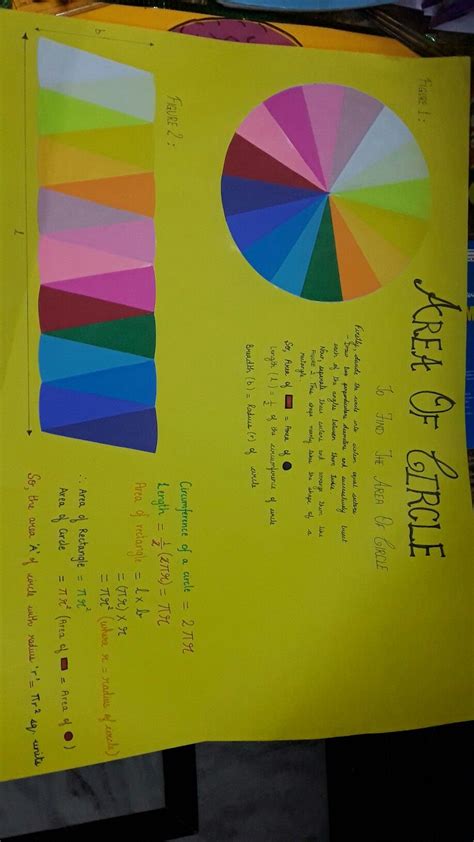 AREA OF CIRCLE
TO FIND THE AREA OF CIRCLE
FIGURE 1:
Firstly, divide the circle into sixteen equal sectors
- Draw two perpendicular diameters and successively bisect
each of the angles between them twice
Now, separate these sectors and arrange them like
FIGURE 2. This shape nearly takes the shape of a
rectangle.
So, Area of = Area of
Length (l) = 1/2 of the circumference of circle
Breadth (b) = Radius (r) of circle
FIGURE 2:
b
l
Circumference of a circle = 2πr
Length = 1/2 (2πr) = πr
Area of rectangle = l x b
= (πr) x r
= πr² (where r = radius of circle)
∴ Area of Rectangle = πr²
Area of Circle = πr² (Area of = Area of )
So, the area 'A' of circle with radius 'r' = πr² sq. units